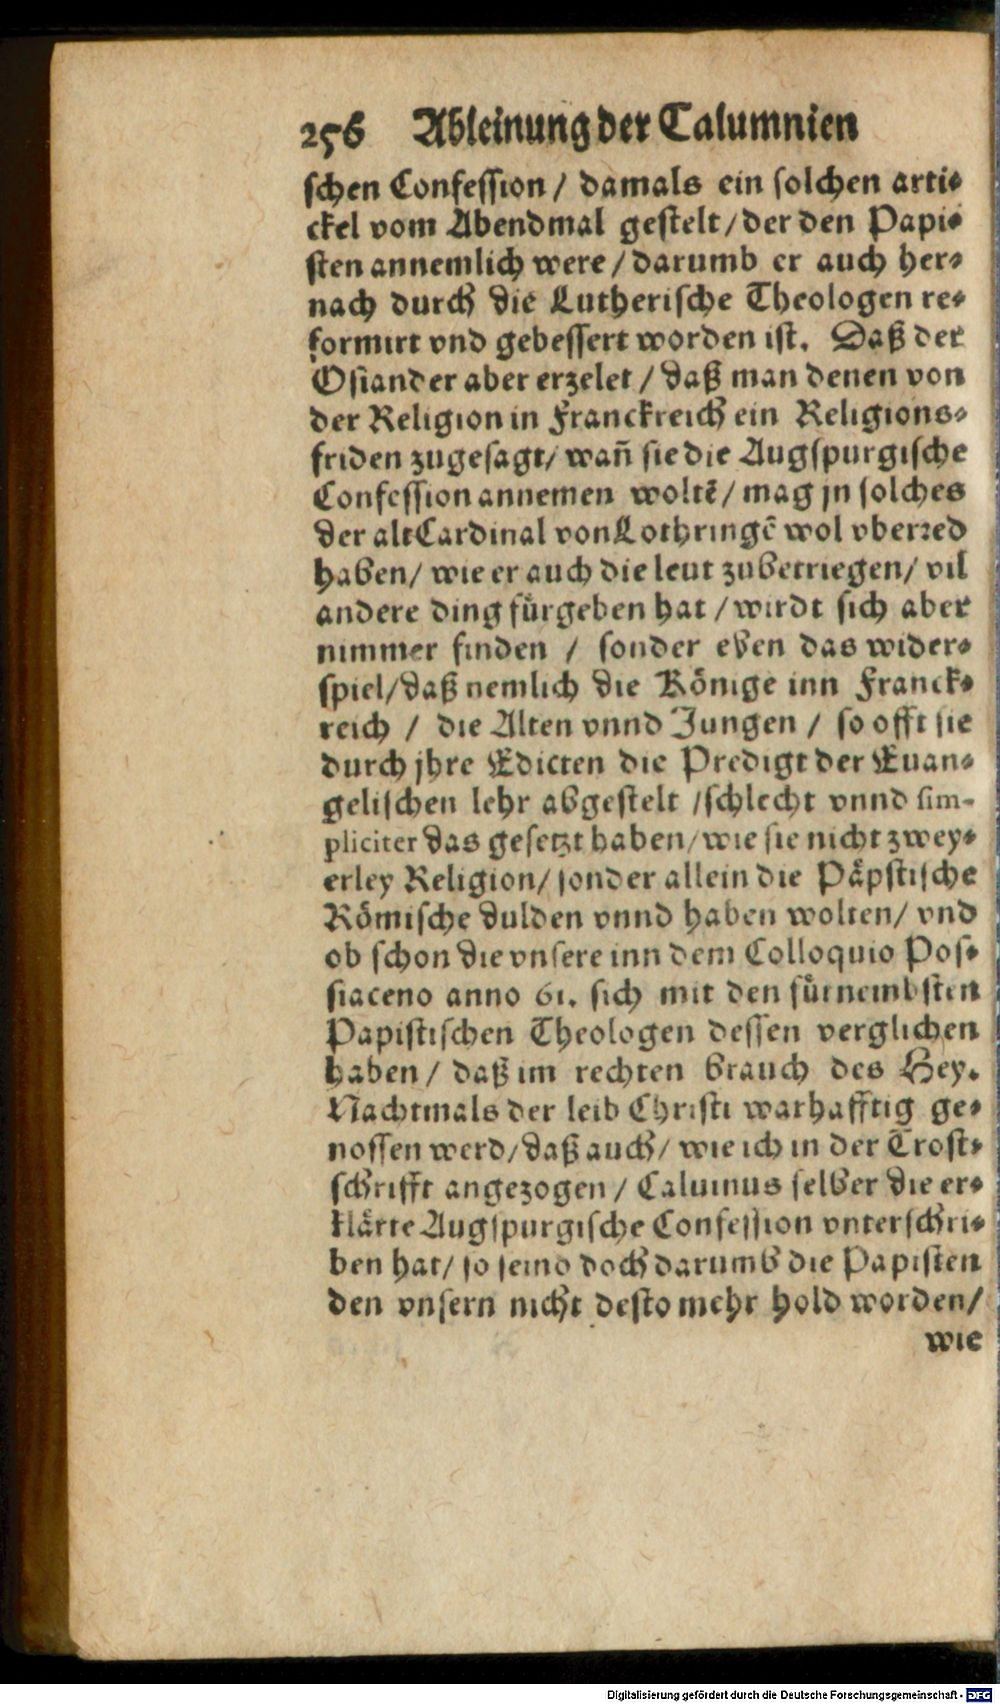 256 Ableinung der Calumnien
schen Confession / damals ein solchen arti⸗
ckel vom Abendmal gestelt / der den Papi⸗
sten annemlich were / darumb er auch her⸗
nach durch die Lutherische Theologen re⸗
formirt vnd gebessert worden ist. Daß der
Osiander aber erzelet / daß man denen von
der Religion in Franckreich ein Religions⸗
friden zugesagt / wañ sie die Augspurgische
Confession annemen woltẽ / mag jn solches
der alt Cardinal von Lothringẽ wol vberred
haben / wie er auch die leut zubetriegen / vil
andere ding fürgeben hat / wirdt sich aber
nimmer finden / sonder eben das wider⸗
spiel / daß nemlich die Könige inn Franck⸗
reich / die Alten vnnd Jungen / so offt sie
durch jhre Edicten die Predigt der Euan⸗
gelischen lehr abgestelt / schlecht vnnd sim-
pliciter das gesetzt haben / wie sie nicht zwey⸗
erley Religion / sonder allein die Päpstische
Römische dulden vnnd haben wolten / vnd
ob schon die vnsere inn dem Colloquio Pos⸗
siaceno anno 61. sich mit den fürnembsten
Papistischen Theologen dessen verglichen
haben / daß im rechten brauch des Hey.
Nachtmals der leib Christi warhafftig ge⸗
nossen werd / daß auch / wie ich in der Trost⸗
schrifft angezogen / Caluinus selber die er⸗
klärte Augspurgische Confession vnterschri⸗
ben hat / so seind doch darumb die Papisten
den vnsern nicht desto mehr hold worden /
wie
Digitalisierung gefördert durch die Deutsche Forschungsgemeinschaft - DFG